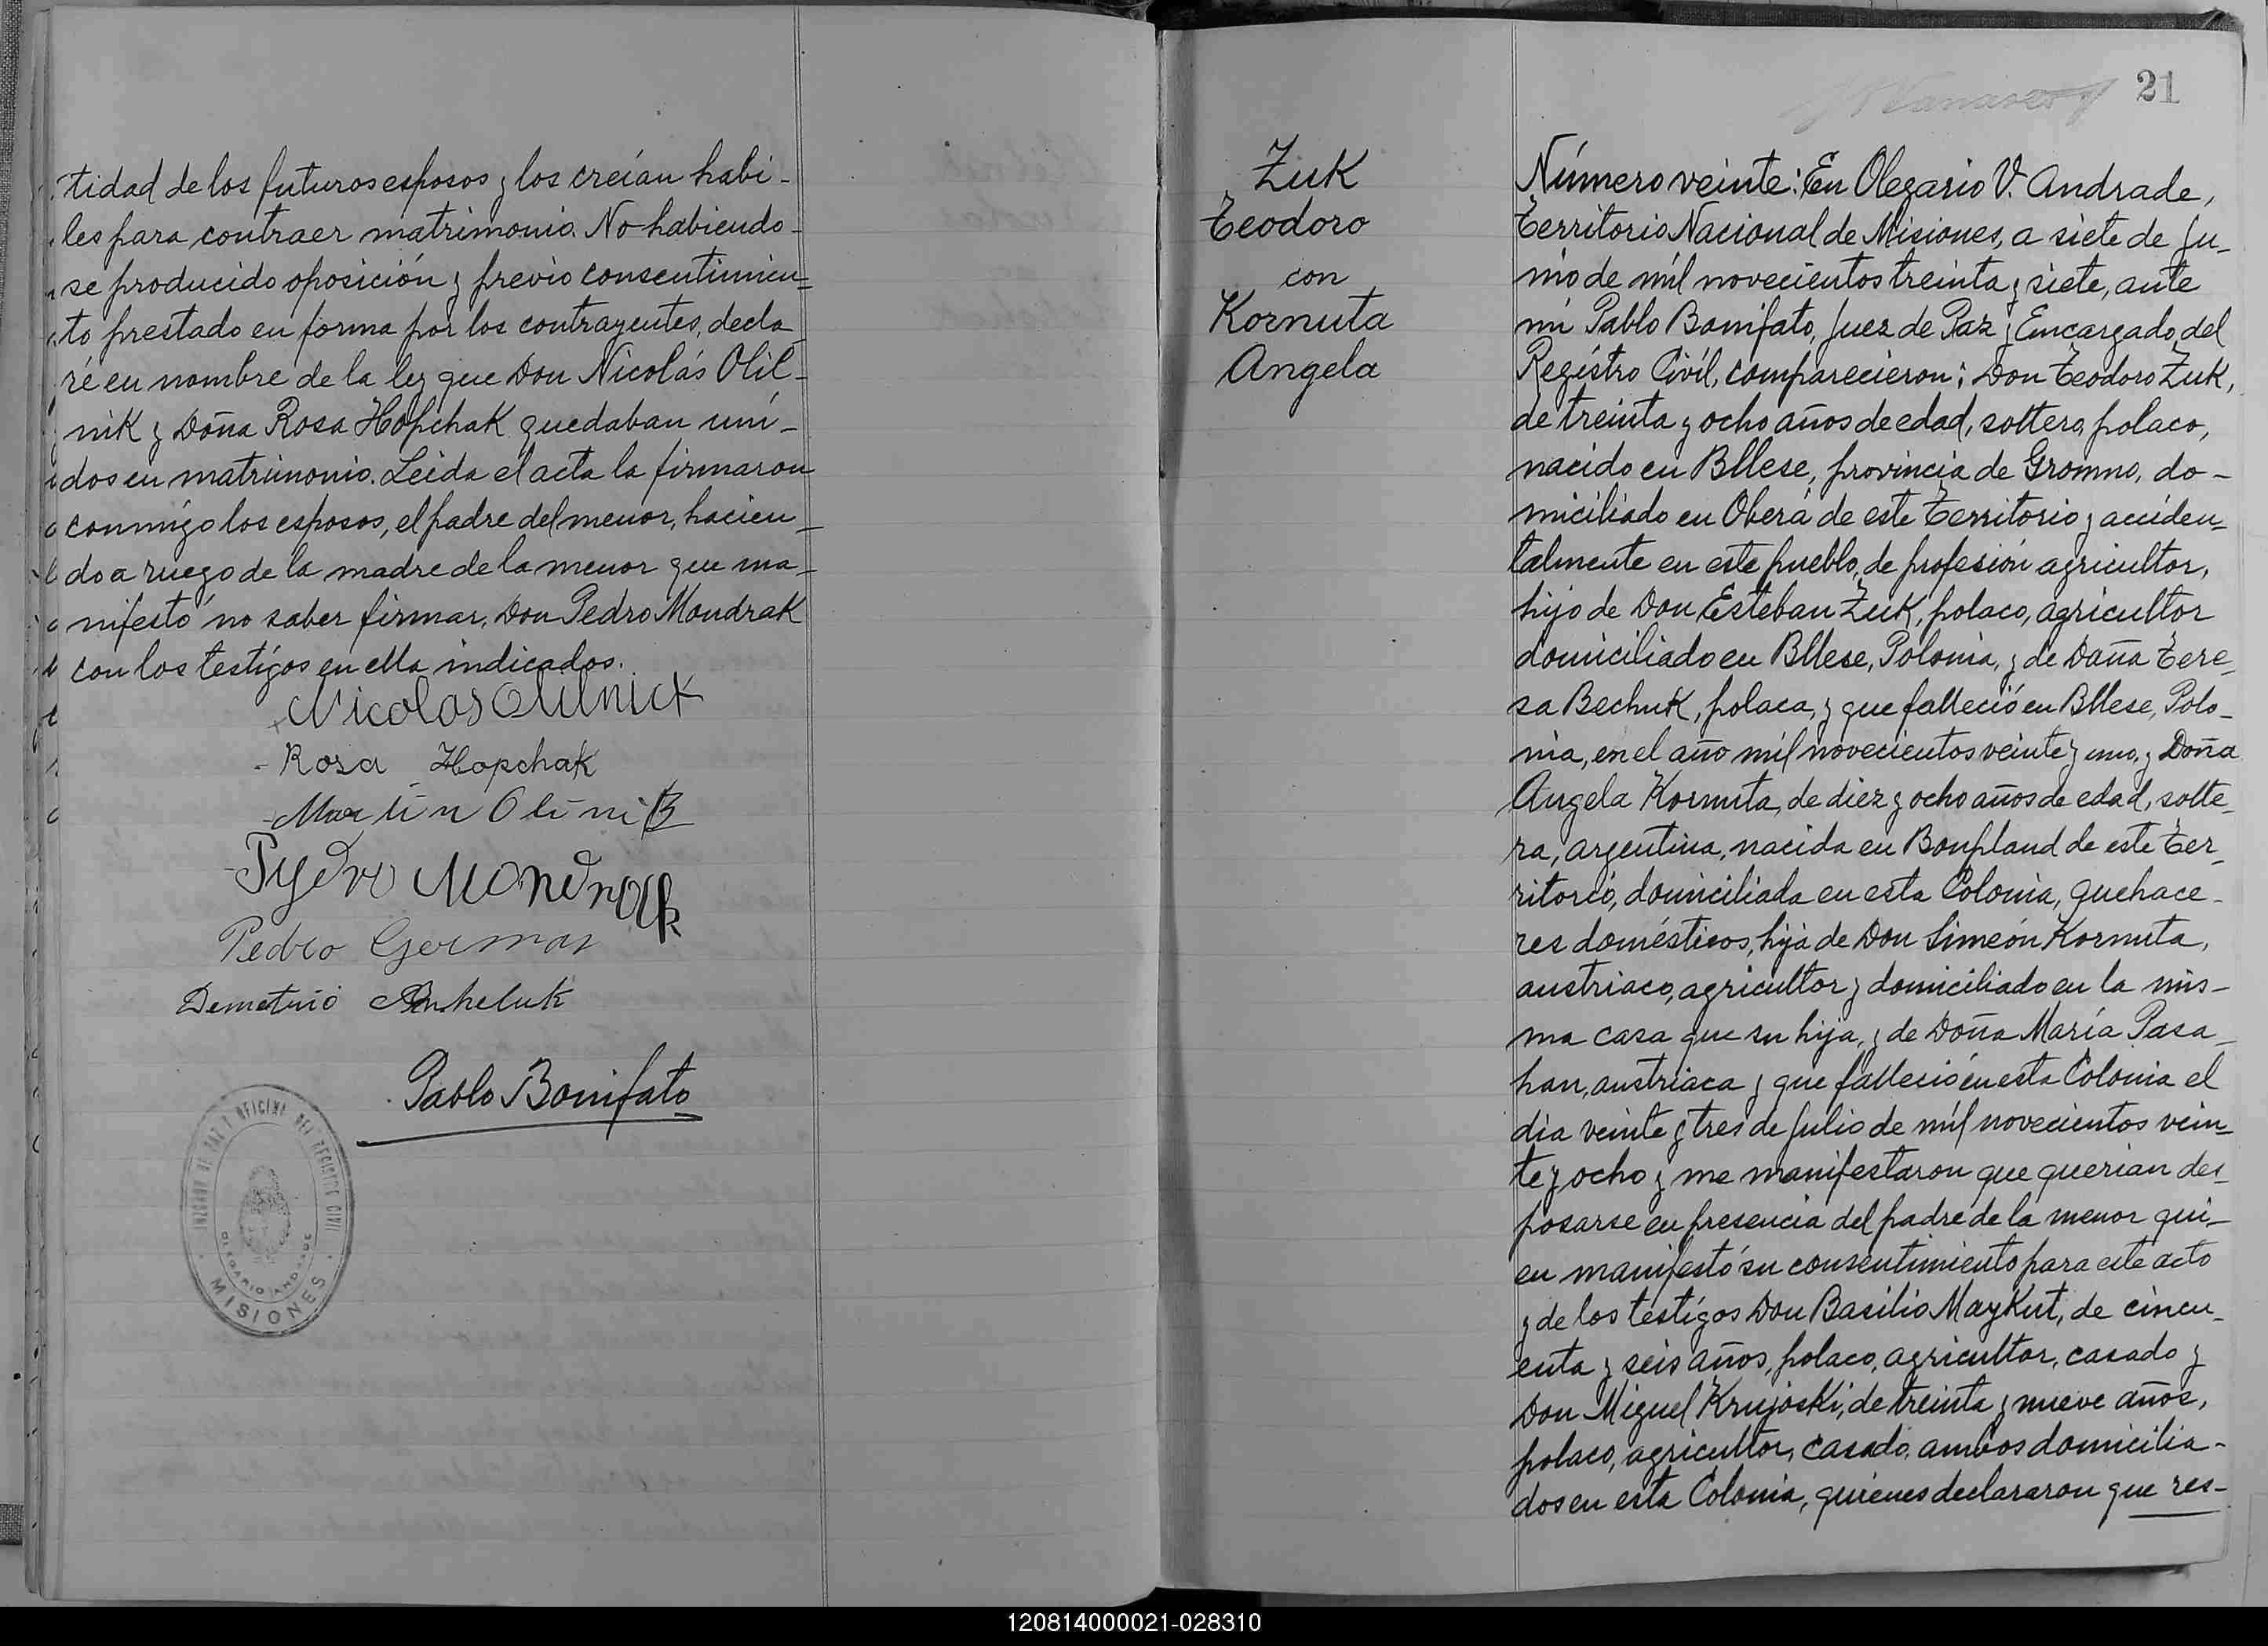 tidad de los futuros esposos y los creían habi-
les para contraer matrimonio. No habiendo-
se producido oposición y previo consentimien-
to prestado en forma por los contrayentes, decla-
ré en nombre de la ley que Don Nicolás Olil-
nik y Doña Rosa Hopchak quedaban uni-
dos en matrimonio. Leida el acta la firmaron
conmigo los esposos, el padre del menor, hacien-
do a ruego de la madre de la menor que ma-
nifestó no saber firmar, Don Pedro Mondrak
con los testigos en ella indicados.
Nicolas Olilnick
Rosa Hopchak
Martin
Mondrak
Pedro German
Demetrio
Pablo Bonifato
JUZGADO DE PAZ Y OFICINA DEL REGISTRO CIVIL
OLEGARIO ANDRADE
MISIONES
21
Zuk
Teodoro
con
Kornuta
Angela
Número veinte: En Olegario V. Andrade,
Territorio Nacional de Misiones, a siete de Ju-
nio de mil novecientos treinta y siete, ante
mi Pablo Bonifato, Juez de Paz y Encargado del
Registro Civil, comparecieron: Don Teodoro Zuk,
de treinta y ocho años de edad, soltero, polaco,
nacido en Bllese, provincia de Gromno, do-
miciliado en Oberá de este Territorio y acciden-
talmente en este pueblo, de profesión agricultor,
hijo de Don Esteban Zuk, polaco, agricultor
domiciliado en Bllese, Polonia, y de Doña Tere-
sa Bechuk, polaca, y que falleció en Bllese, Polo-
nia, en el año mil novecientos veinte y uno, y Doña
Angela Kornuta, de diez y ocho años de edad, solte-
ra, argentina, nacida en Bonpland de este Ter-
ritorio, domiciliada en esta Colonia, quehace-
res domésticos, hija de Don Simeón Kornuta,
austriaco, agricultor y domiciliado en la mis-
ma casa que su hija, y de Doña María Pasa-
han, austriaca y que falleció en esta Colonia el
dia veinte y tres de Julio de mil novecientos vein-
te y ocho y me manifestaron que querian des-
posarse en presencia del padre de la menor qui-
en manifestó su consentimiento para este acto
y de los testigos Don Basilio Maykut, de cincu-
enta y seis años, polaco, agricultor, casado y
Don Miguel Krujoski, de treinta y nueve años,
polaco, agricultor, casado, ambos domicilia-
dos en esta Colonia, quienes declararon que res-
120814000021-028310